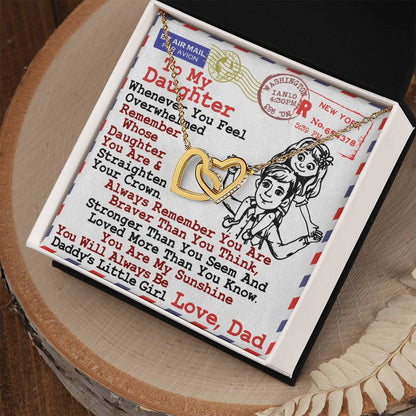 BY AIR MAIL
PAR AVION
To My
Daughter
WASHINGTON
IAN10
4:30PM
NEW YORK
R
No.654378
5:39 PM
Whenever You Feel
Overwhelmed
Remember
Whose
Daughter
You Are &
Straighten
Your Crown
Always Remember You Are
Braver Than You Think,
Stronger Than You Seem And
Loved More Than You Know.
You Are My Sunshine
You Will Always Be
Daddy's Little Girl
Love, Dad